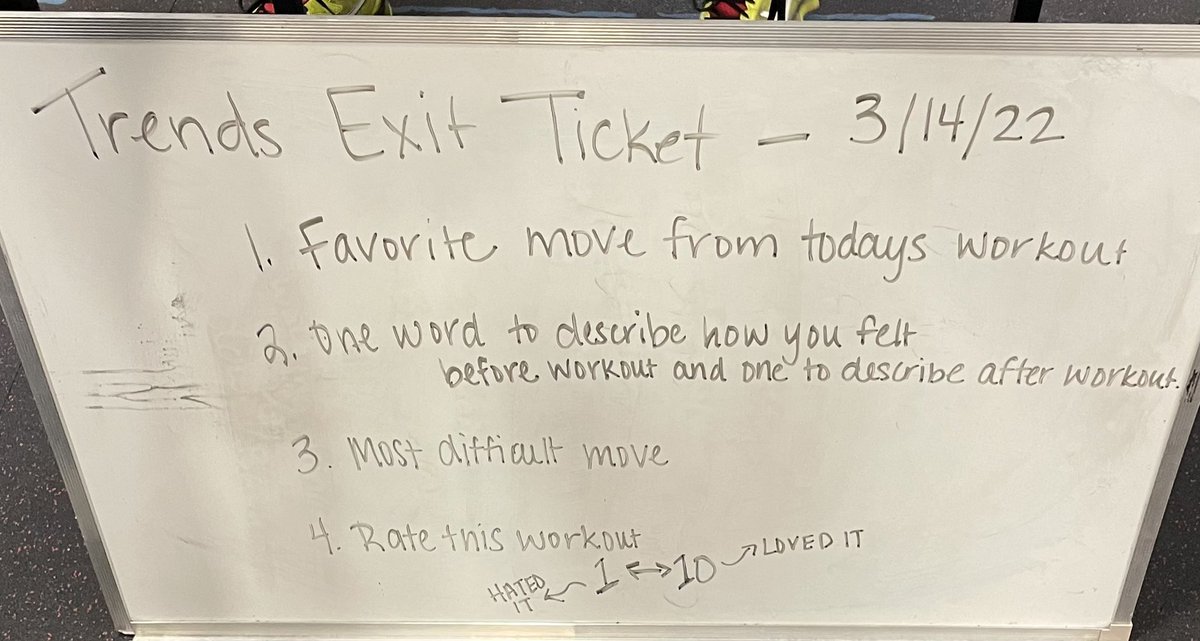 Trends Exit Ticket - 3/14/22
1. Favorite move from todays workout
2. One word to describe how you felt
before workout and one to describe after workout.
3. Most difficult move
4. Rate this workout
HATED IT ← 1 ↔ 10 → LOVED IT